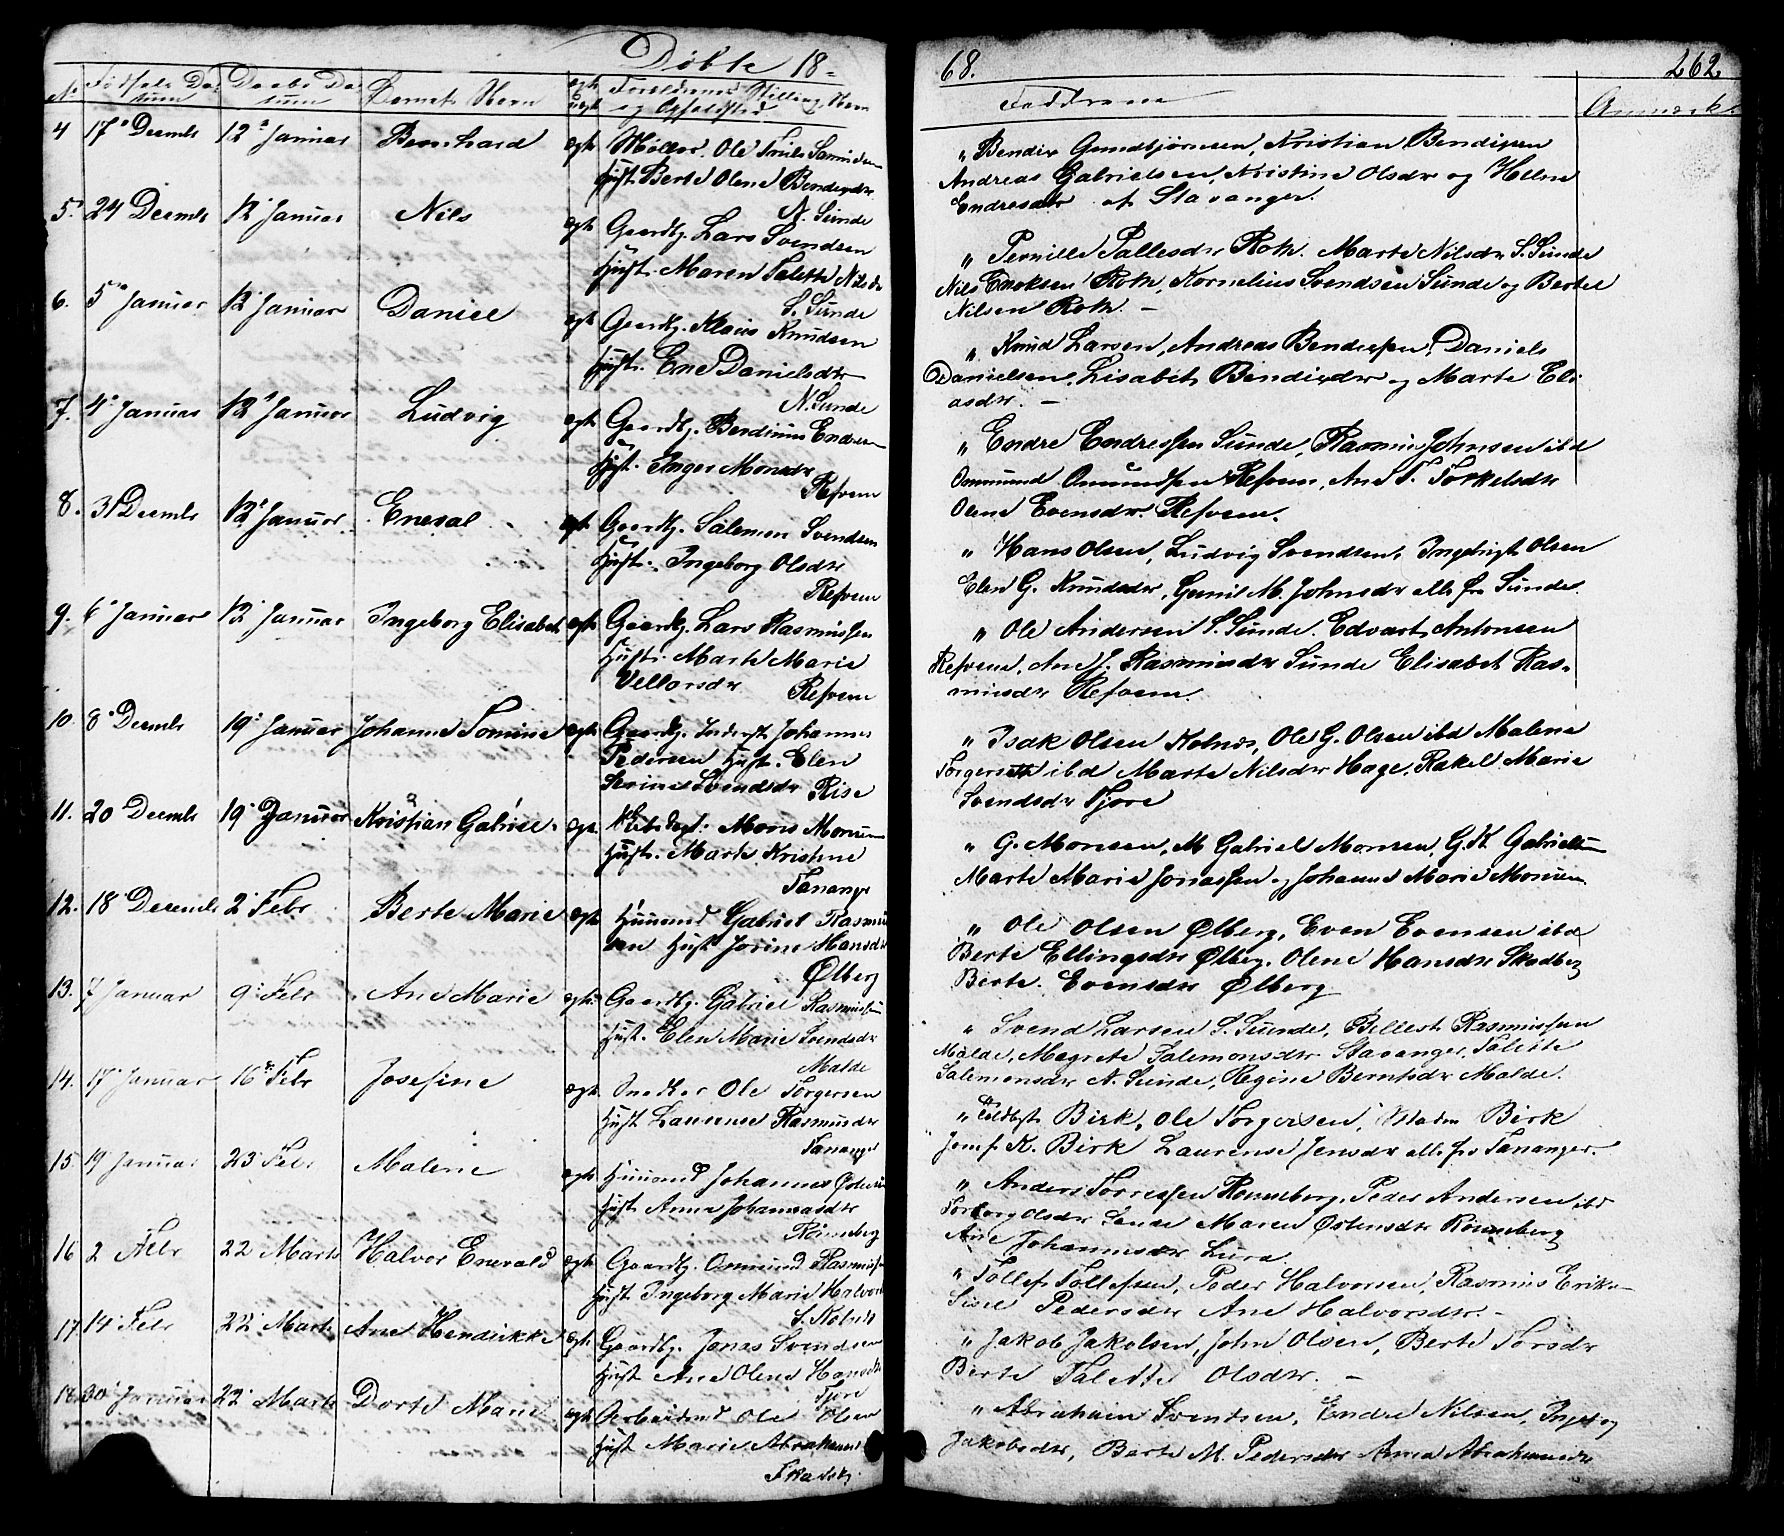 Døbte 18
68.
262
No
Fødsels Da
tum
Daabs Da
tum
Barnets Navn
ægte
uægt
Forældrenes Stilling, Navn
og Opholdsted
Faddrene
Anmærk.
4 17 Decmb 12 Januar Bernhard ægte Møller Ole Truls
Hust. Berte Olene Bendixdr
N. Sunde
" Bendix Gundbjørnsen, Kristian Bendixen
Andreas Gabrielsen, Kristine Olsdr og Helene
Endresdr af Stavanger.
5 24 Decmb 12 Januar Nils ægte Gaardbr. Lars Svendsen
Hust. Maren Talette Nilsdr
S. Sunde
" Pernille Pallesdr Roth. Marte Nilsdr S. Sunde
Nils Enoksen Roth, Kornelius Svendsen Sunde og Bertel
Nilsen Roth. —
6. 5 Januar 12 Januar Daniel ægte Gaardbr. Klaus Knudsen
Hust. Ene Danielsdr
N. Sunde
" Knud Larsen, Andreas Bendixsen, Daniels
Danielsen, Lisabet Bendixdr og Marte Eli
asdr. —
7. 4 Januar 12 Januar Ludvig ægte Gaardbr. Berdinus Endresen
Hust. Inger Monsdr
Refvem
" Endre Endressen Sunde, Rasmus Johnsen ibd
Ommund Omundsen Refvem, Ane T. Torkelsdr
Olene Evensdr Refvem.
8. 31 Decmb 12 Januar Eneval ægt Gaardbr. Salemon Svendsen
Hust. Ingeborg Olsdr
Refvem
" Hans Olsen, Ludvig Svendsen, Ingebrigt Olsen
Elen G. Knudsdr, Gunil M. Johnsdr alle fra Sunde.
9. 6 Januar 12 Januar Ingeborg Elisabet ægte Gaardbr. Lars Rasmussen
Hust. Marte Marie
Vellorsdr Refvem
" Ole Andersen S. Sunde. Edvart Antonsen
Refvem, Ane J. Rasmusdr Sunde Elisabet Ras-
musdr Refvem.
10. 8 Decmb 19 Januar Johanne Tomine ægte Gaardbr. Johannes
Pedersen Hust. Elen
Serine Svendsdr Rise
" Isak Olsen Kolnes, Ole G. Olsen ibd Malene
Torgersdr ibd Marte Nilsdr Hage, Rakel Marie
Svendsdr Tjore
11. 20 Decmb 19 Januar Kristian Gabriel ægte Mons Monsen
Hust. Marte Kristine
Tananger
" G. Monsen, M Gabriel Monsen, G. K Gabrielsen
Marte Marie Jonassen og Johanne Marie Monsen
12. 18 Decemb 2 Febr Berte Marie ægte Huusmd Gabriel Rasmus
sen Hust Jorine Hansdr
Ølberg
" Ole Olsen Ølberg, Even Evensen ibd
Berte Ellingsdr Ølberg. Olene Hansdr Skadberg
Berte Evensdr Ølberg
13. 7 Januar 9 Febr Ane Marie ægte Gaardbr. Gabriel Rasmussen
Hust. Elen Marie Svendsdr
Malde
" Svend Larsen S. Sunde, Bellest Rasmussen
Malde, Magrete Salemonsdr Stavanger, Talette
Salemonsdr N. Sunde, Regine Berntsdr Malde.
14. 17 Januar 16 Febr Josefine ægte Snedker Ole Torgersen
Hust Laurense Rasmusdr
Tananger
" Toldbgt Birk, Ole Torgersen, Madm Birk
Josef K. Birk Laurense Jensdr alle fra Tananger.
15 19 Januar 23 Febr Malene ægte Huusmd Johannes Østensen
Hust Anna Johannesdr
Rønneberg
" Anders Torressen Rønneberg, Peder Andersen ibd
Torborg Olsdr Sande Maren Østensdr Rønneberg
Ane Johannesdr Lura
16 2 Febr 22 Marts Halvor Enevald ægte Gaardbr. Ommund Rasmussen
Hust Ingeborg Marie Halvorsdr
S. Kolnes
" Tollef Tollefsen, Peder Halvorsen, Rasmus Eriks
Sisel Pedersdr Ane Halvorsdr. —
17 14 Febr 22 Marts Ane Hendrikke ægte Gaardbr. Jonas Svendsen
Hust Ane Olene Hansdr
Tjore
" Jakob Jakobsen, John Olsen, Berte Torsdr
Berte Talette Olsdr. —
18. 30 Januar 22 Marts Dorte Marie ægte Arbeidsmd Ole Olsen
Hust Marie Abrahamsd
" Abraham Svendsen, Endre Nilsen, Ingeborg
Jakobsdr, Berte M. Pedersdr Anna Abrahamsdr